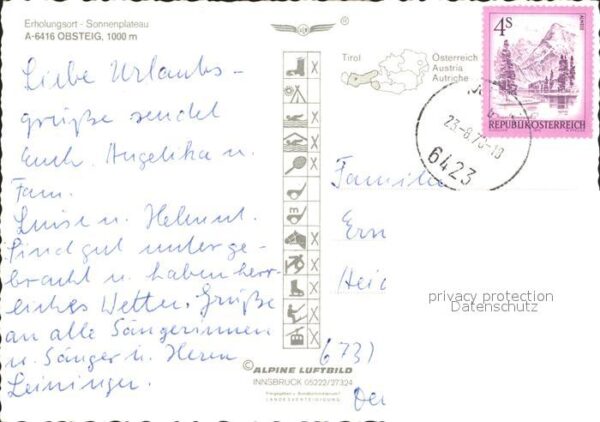 Erholungsort - Sonnenplateau
A-6416 OBSTEIG, 1000 m
Liebe Urlaubs-
grüße sendet
Euch Angelika u.
Fam.
Luise u. Helmut.
Sind gut unterge-
bracht u. haben herr-
liches Wetter. Grüße
an alle Sängerinnen
u. Sänger u. Herrn
Leininger.
Tirol
Österreich
Austria
Autriche
4S
REPUBLIK ÖSTERREICH
6423
Familie
Ern
Heid
privacy protection
Datenschutz
6731
© ALPINE LUFTBILD
INNSBRUCK 05222/27324
LANDESVERTEIDIGUNG